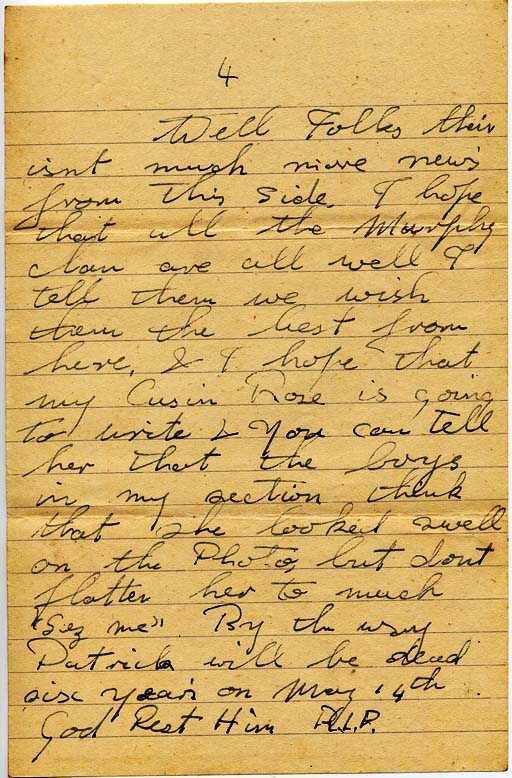 4
Well Folks their
isnt much more news
from this side. I hope
that all the Murphy
clan are all well &
tell them we wish
them the best from
here, & I hope that
my Cusin Rose is going
to write & you can tell
her that the boys
in my section think
that she looked swell
on the Photo, but dont
flatter her to much
"Sez me". By the way
Patrick will be dead
six years on May 14th.
God Rest Him R.I.P.